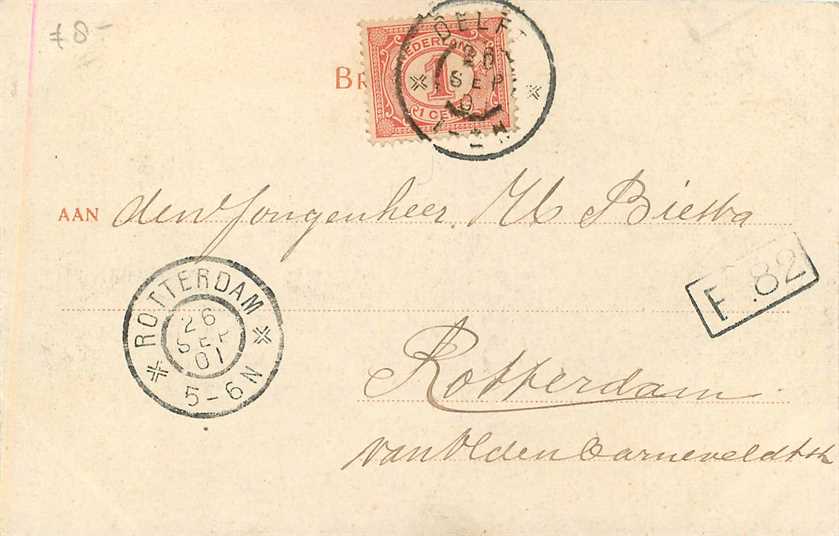 f 8-
DELFT
26
SEP
NEDERLAND
1
1 CENT
BR
AAN den Jongenheer. H Biesba
F 82
ROTTERDAM
26
SEP
01
5-6N
Rotterdam
van Olden Barneveldtstr